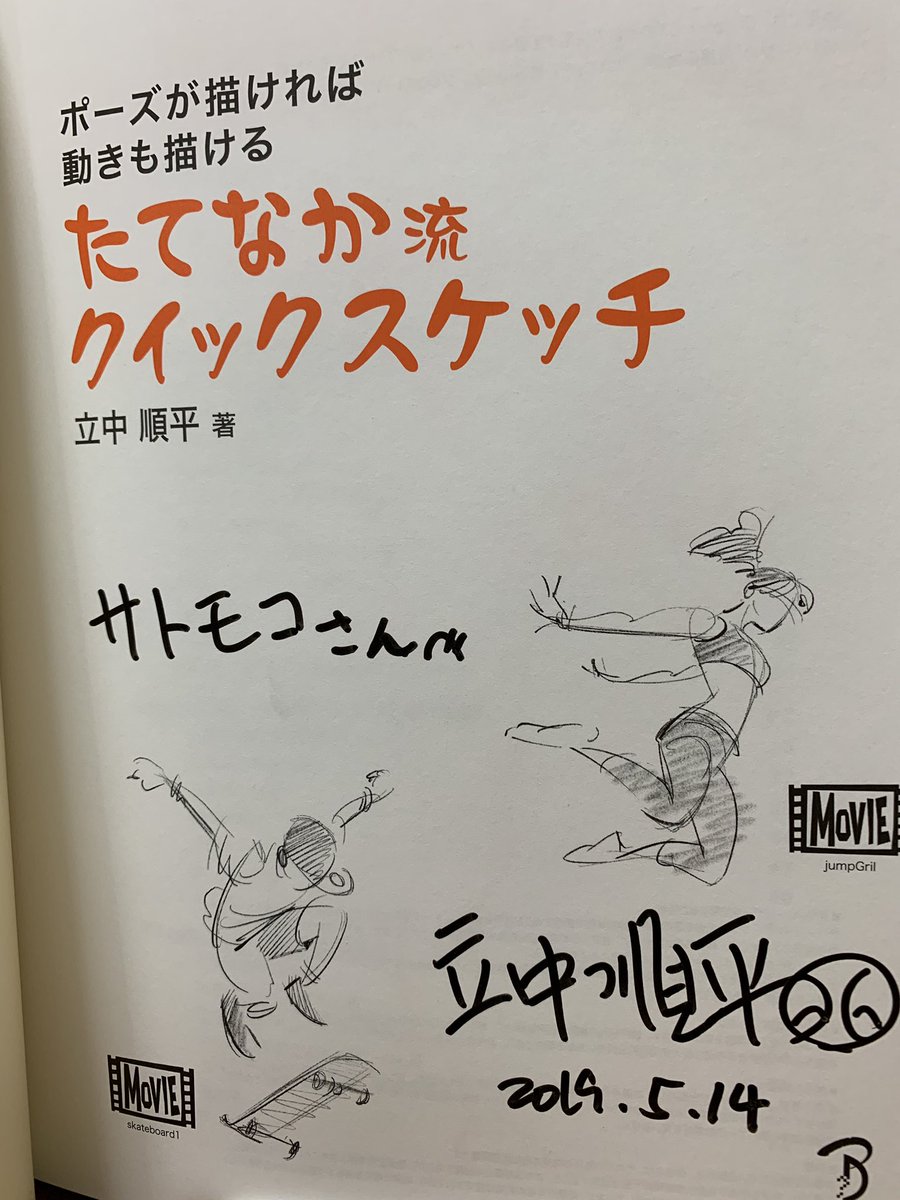 ポーズが描ければ
動きも描ける
たてなか流
クイックスケッチ
立中 順平 著
サトモコさんへ
MOVIE
jumpGril
立中順平
2019.5.14
MOVIE
skateboard1